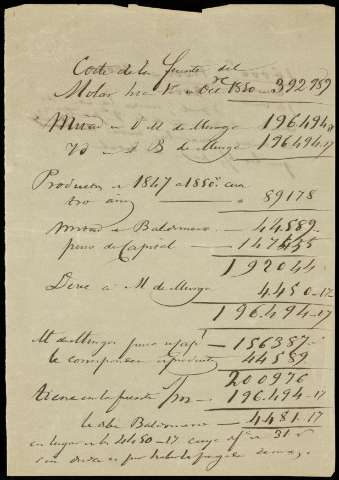 Coste de la fuente del
Molar hta 1º Dice 1850 392.989
Mitad a D. M de Murga 196.494,,17
Yd a B de Murga 196.494,,17
Productos a 1847 a 1850. cua
tro años a 89178
Mitad a Baldomero 44589
puso de Capital 147435
192044
Debe a M de Murga 4450-17
196.494-17
M de Murga puso 156387
le corresponden 44589
200976
tiene en la fuente 196.494-17
le debe Baldomero 4481-17
en lugar 4450-17 31